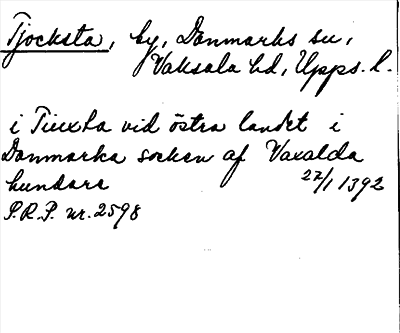 Tjocksta, by, Danmarks sn,
Vaksala hd, Upps. l.
i Tiuxta vid östra landet i
Danmarka socken af Vaxalda
hundare 22/1 1392
P.R.P. nr. 2598